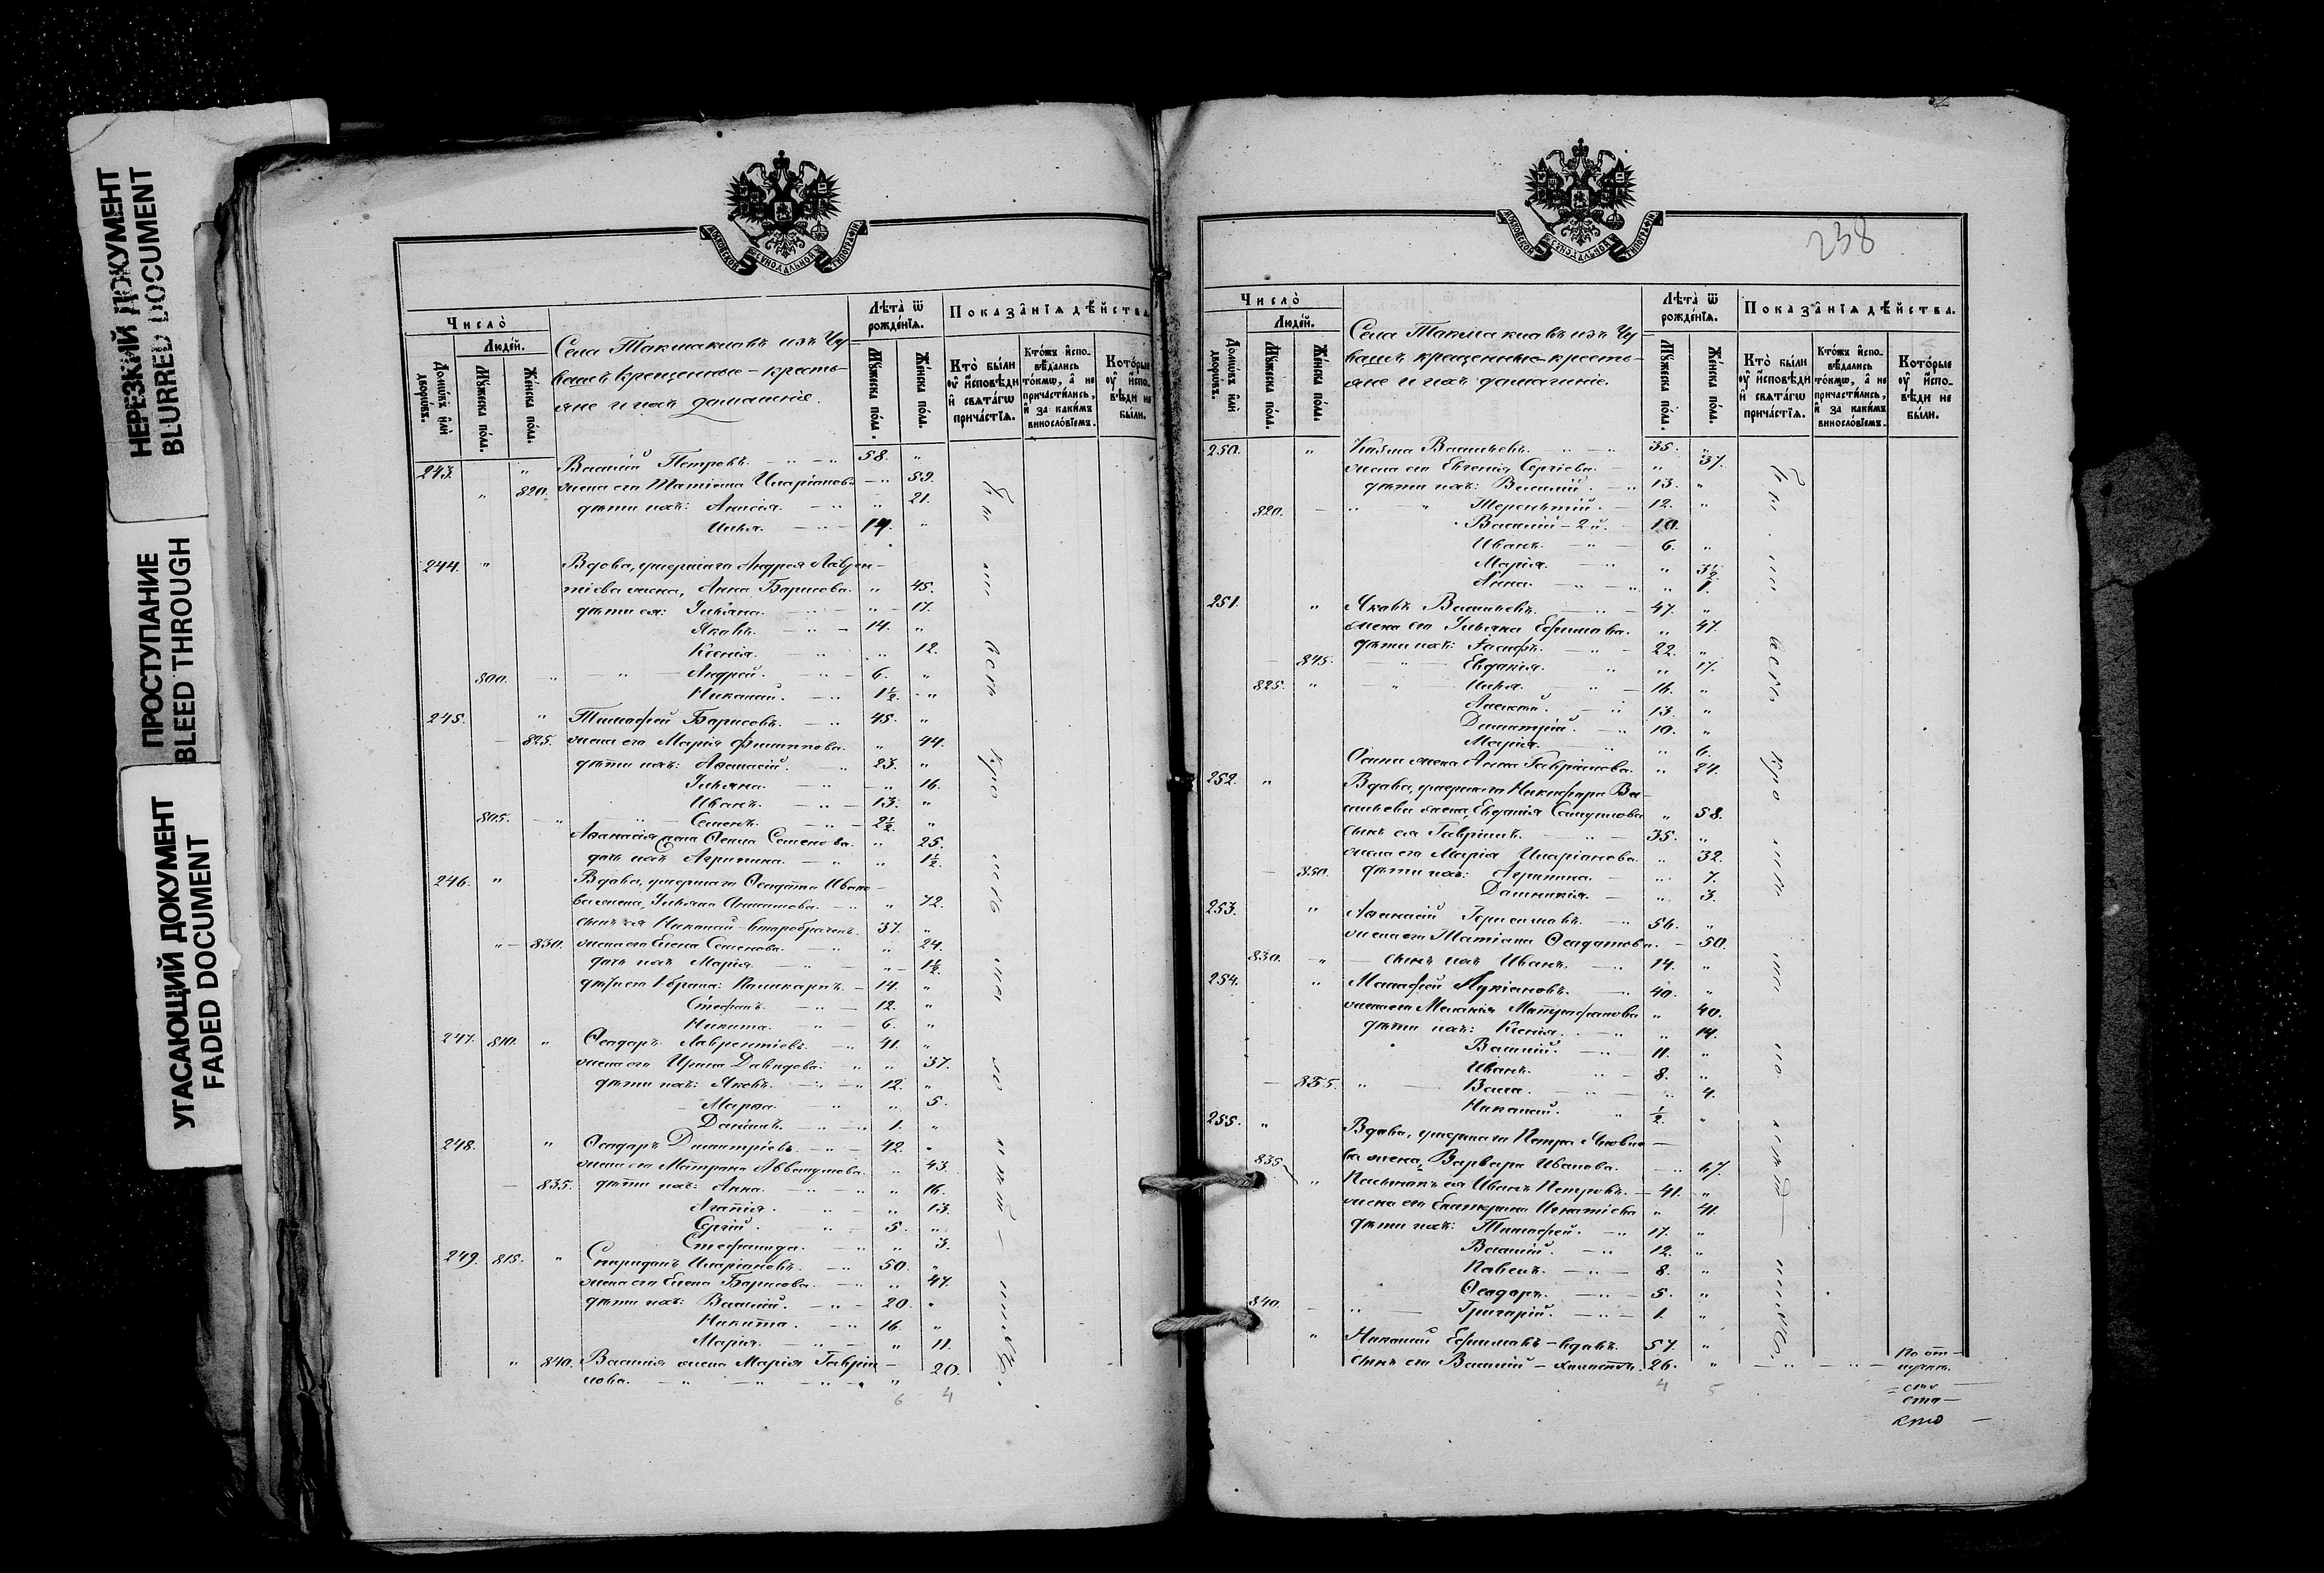 НЕРЕЗКИЙ ДОКУМЕНТ
BLURRED DOCUMENT
ПРОСТУПАНИЕ
BLEED THROUGH
УГАСАЮЩИЙ ДОКУМЕНТ
FADED DOCUMENT
МОСКОВСКОЙ СѴНОДАЛЬНОЙ ТИПОГРАФІИ
Число̀
Людéй.
Домѡ́въ и҆лѝ дворѡ́въ.
Мꙋ́жеска по́ла.
Же́нска по́ла.
Села Такмаклавъ изъ Чу-
вашъ крещенные - кресть-
яне и ихъ домашніе.
Лѣта̀ ѿ рождéнїѧ.
Мꙋ́жеска по́ла.
Же́нска по́ла.
Показа̂нїѧ дѣ́йства.
Кто̀ бы́ли ᲂу҆ и҆сповѣди и҆ свѧта́гѡ прича́стїѧ.
Кто́жъ и҆спо-вѣ́дались то́кмѡ, а҆ не причасти́лись, и҆ за каки́мъ винослóвїемъ.
Кото́рые ᲂу҆ и҆спо-вѣди не бы́ли.
243. " Василій Петровъ. 58. "
" 820. жена его Татіана Иларіонова 59.
дѣти ихъ: Анисія. " 21.
Илья. 19. "
244. " Вдова, умершаго Андрея Лаврен-
тіева жена, Анна Борисова. " 45.
дѣти ея: Іуліана. " 17.
Яковъ. 14. "
Ксенія. " 12.
800. " Андрей. 6. "
Николай. 1½. "
245. " Тимофей Борисовъ. 45. "
825. жена его Марія Филиппова. " 44.
дѣти ихъ: Аѳанасій. 23. "
Іуліана. " 16.
Иванъ. 13. "
805. Семенъ. 2½. "
Аѳанасія жена Семенова. " 25.
дочь ихъ Агрипина. " 1½.
246. " Вдова, умершаго Ѳеодота Ивано-
ва жена, Іуліана " 72.
сынъ ея Николай - второбраченъ. 37. "
" 830. жена его Елена Семенова. " 24.
дочь ихъ Марія. " 1½.
дѣти его 1 брака: 14. "
Стефанъ. 12. "
Никита. 6. "
247. 810. " Ѳеодоръ Лаврентіевъ. 41. "
жена его Ирина Давидова. " 37.
дѣти ихъ: Яковъ. 12. "
Марѳа. " 5.
Даніилъ. 1. "
248. " Ѳеодоръ Димитріевъ. 42. "
жена его Матрона Аввакумова. " 43.
835. дѣти ихъ: Анна. " 16.
Агапія. " 13.
Сергій. 5. "
Стефанида. " 3.
249. 815. " Спиридонъ Иларіоновъ. 50. "
жена его Елена Борисова. " 47.
дѣти ихъ: Василій. 20. "
Никита. 16. "
Марія. " 11.
" 840. Василія жена Марія Гавріи-
лова. " 20.
6 4
МОСКОВСКОЙ СѴНОДАЛЬНОЙ ТИПОГРАФІИ
238
Число̀
Людéй.
Домѡ́въ и҆лѝ дворѡ́въ.
Мꙋ́жеска по́ла.
Же́нска по́ла.
Села Такмаклавъ изъ Чу-
вашъ крещенные - кресть-
яне и ихъ домашніе.
Лѣта̀ ѿ рождéнїѧ.
Мꙋ́жеска по́ла.
Же́нска по́ла.
Показа̂нїѧ дѣ́йства.
Кто̀ бы́ли ᲂу҆ и҆сповѣди и҆ свѧта́гѡ прича́стїѧ.
Кто́жъ и҆спо-вѣ́дались то́кмѡ, а҆ не причасти́лись, и҆ за каки́мъ винослóвїемъ.
Кото́рые ᲂу҆ и҆спо-вѣди не бы́ли.
250. " Козьма Васильевъ. 35. "
жена его Евгенія Сергіева. " 37.
дѣти ихъ: Василій. 13. "
820. Терентій. 12. "
Василій - 2 й. 10.
Иванъ. 6. "
Марія. " 3½.
Анна. " 1.
251. " Яковъ Васильевъ. 47. "
жена его Іуліана Ефимова. " 47.
дѣти ихъ: Іосифъ. 22. "
845. Евдокія. " 17.
825. " Илья. 16. "
Алексѣй. 13. "
Димитрій. 10. "
Марія. " 6.
Осипа жена Анна Гавріилова. " 24.
252. " Вдова, умершаго Никифора Ва-
сильева жена, Евдокія " 58.
сынъ ея Гавріилъ. 35. "
жена его Марія Иларіонова. " 32.
850. дѣти ихъ: Агрипина. " 7.
Домникія. " 3.
253. " Аѳанасій Герасимовъ. 56. "
жена его Татіана Ѳеодотова. 50.
830. " сынъ ихъ Иванъ. 14. "
254. " Лукіановъ. 40. "
жена его Меланія Митрофанова " 40.
дѣти ихъ: Ксенія. " 14.
Василій. 11. "
Иванъ. 8. "
855. " " 4.
Николай. ½ "
255. " Вдова, умершаго Петра Яковле-
ва жена, Варвара Иванова. " 67.
835 " ея Иванъ Петровъ. 41. "
жена его Екатерина Игнатіева " 41.
дѣти ихъ: Тимофей. 17. "
Василій. 12. "
Павелъ. 8. "
Ѳеодоръ. 5. "
840. Григорій. 1. "
" Николай Ефимовъ - вдовъ. 57. "
сынъ его Василій - холостъ. 26. "
4 5